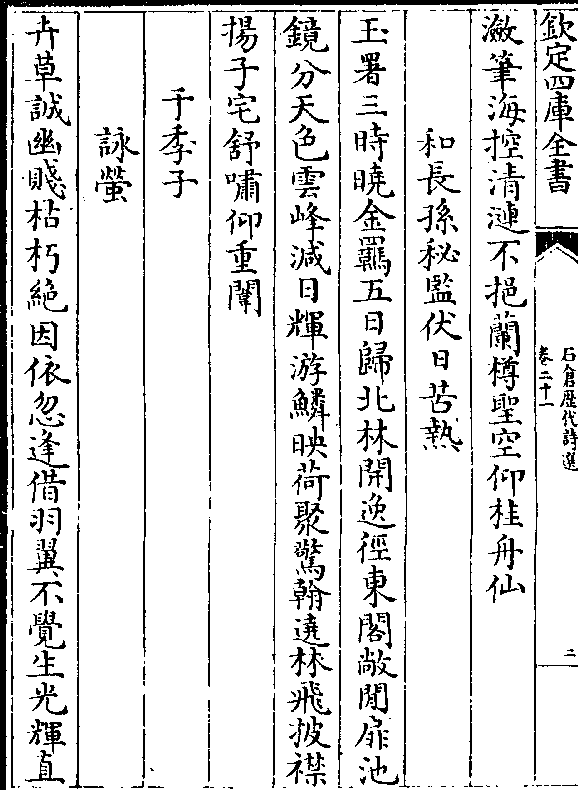 欽定四庫全書
石倉歷代詩選
卷二十一
二
瀲筆海控清漣不挹蘭樽聖空仰桂舟仙
和長孫秘監伏日苦熱
玉署三時曉金羈五日歸北林開逸徑東閣敞閒扉池
鏡分天色雲峰減日輝游鱗映荷聚驚翰遶林飛披襟
揚子宅舒嘯仰重闈
于季子
詠螢
卉草誠幽賤枯朽絕因依忽逢借羽翼不覺生光輝直